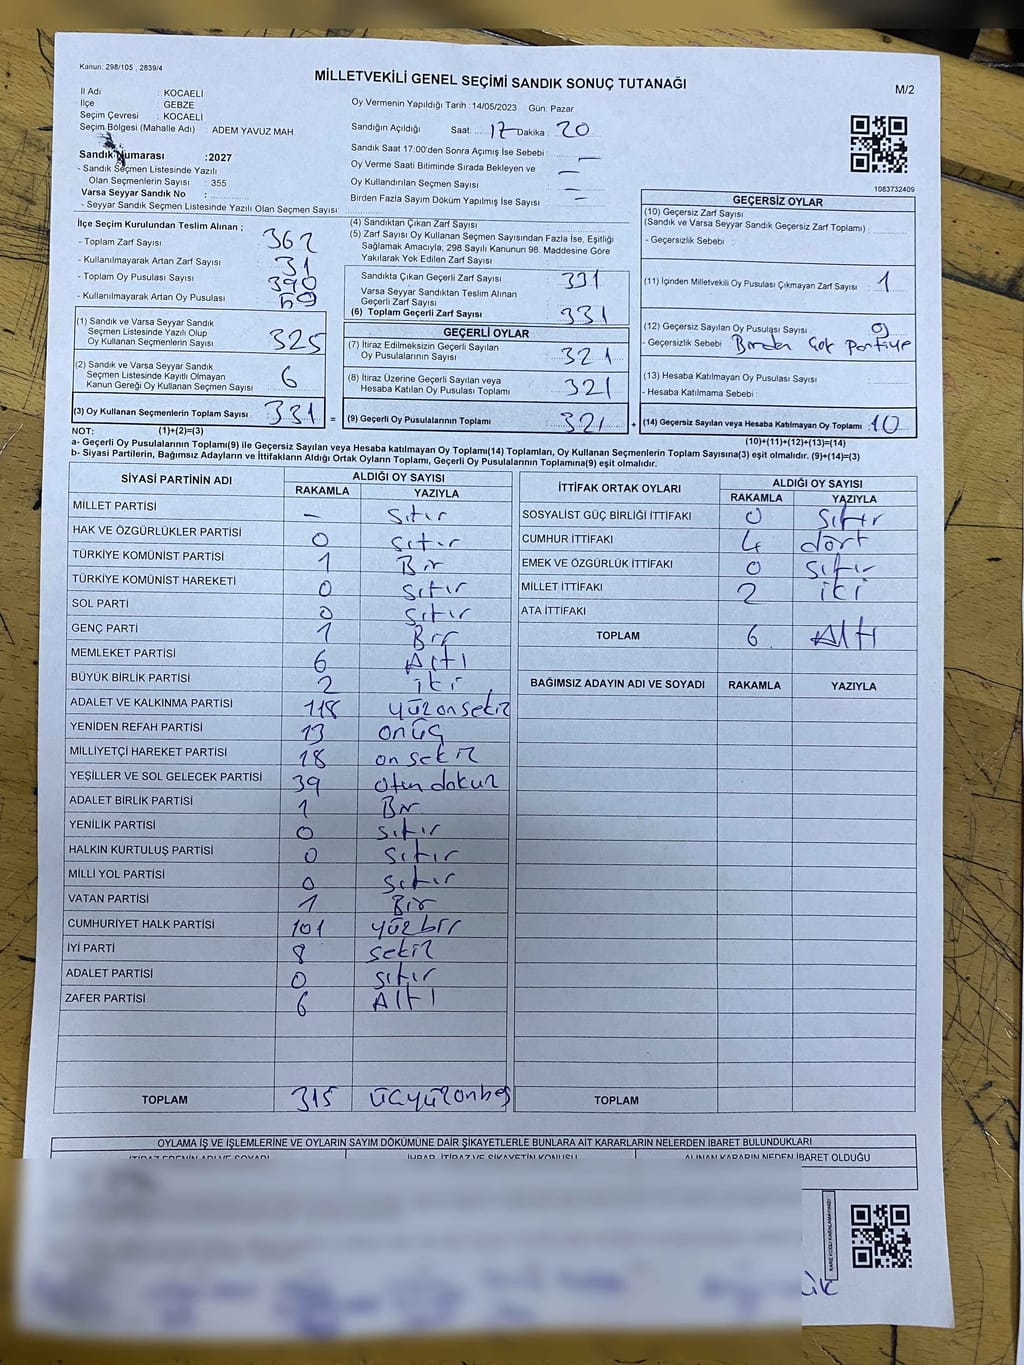 Kanun: 298/105 , 2839/4
MİLLETVEKİLİ GENEL SEÇİMİ SANDIK SONUÇ TUTANAĞI
M/2
İl Adı : KOCAELİ
İlçe : GEBZE
Seçim Çevresi : KOCAELİ
Seçim Bölgesi (Mahalle Adı) : ADEM YAVUZ MAH
Sandık Numarası :2027
- Sandık Seçmen Listesinde Yazılı
Olan Seçmenlerin Sayısı 355
Varsa Seyyar Sandık No :
- Seyyar Sandık Seçmen Listesinde Yazılı Olan Seçmen Sayısı:
Oy Vermenin Yapıldığı Tarih :14/05/2023 Gün: Pazar
Sandığın Açıldığı Saat: 17 Dakika : 20
Sandık Saat 17:00'den Sonra Açımış İse Sebebi : —
Oy Verme Saati Bitiminde Sırada Bekleyen ve —
Oy Kullandırılan Seçmen Sayısı —
Birden Fazla Sayım Döküm Yapılmış İse Sayısı : —
1083732409
İlçe Seçim Kurulundan Teslim Alınan ;
- Toplam Zarf Sayısı : 362
- Kullanılmayarak Artan Zarf Sayısı : 31
- Toplam Oy Pusulası Sayısı : 390
- Kullanılmayarak Artan Oy Pusulası :
(1) Sandık ve Varsa Seyyar Sandık
Seçmen Listesinde Yazılı Olup
Oy Kullanan Seçmenlerin Sayısı : 325
(2) Sandık ve Varsa Seyyar Sandık
Seçmen Listesinde Kayıtlı Olmayan
Kanun Gereği Oy Kullanan Seçmen Sayısı : 6
(3) Oy Kullanan Seçmenlerin Toplam Sayısı : 331 =
(4) Sandıktan Çıkan Zarf Sayısı :
(5) Zarf Sayısı Oy Kullanan Seçmen Sayısından Fazla İse, Eşitliği
Sağlamak Amacıyla, 298 Sayılı Kanunun 98. Maddesine Göre
Yakılarak Yok Edilen Zarf Sayısı :
Sandıkta Çıkan Geçerli Zarf Sayısı : 331
Varsa Seyyar Sandıktan Teslim Alınan
Geçerli Zarf Sayısı :
(6) Toplam Geçerli Zarf Sayısı : 331
GEÇERLİ OYLAR
(7) İtiraz Edilmeksizin Geçerli Sayılan
Oy Pusulalarının Sayısı : 321
(8) İtiraz Üzerine Geçerli Sayılan veya
Hesaba Katılan Oy Pusulası Toplamı : 321
(9) Geçerli Oy Pusulalarının Toplamı 321 +
GEÇERSİZ OYLAR
(10) Geçersiz Zarf Sayısı
(Sandık ve Varsa Seyyar Sandık Geçersiz Zarf Toplamı) :
- Geçersizlik Sebebi :
(11) İçinden Milletvekili Oy Pusulası Çıkmayan Zarf Sayısı : 1
(12) Geçersiz Sayılan Oy Pusulası Sayısı : 9
- Geçersizlik Sebebi : Birden Çok Partiye
(13) Hesaba Katılmayan Oy Pusulası Sayısı :
- Hesaba Katılmama Sebebi :
(14) Geçersiz Sayılan veya Hesaba Katılmayan Oy Toplamı : 10
NOT: (1)+(2)=(3)
(10)+(11)+(12)+(13)=(14)
a- Geçerli Oy Pusulalarının Toplamı(9) ile Geçersiz Sayılan veya Hesaba katılmayan Oy Toplamı(14) Toplamları, Oy Kullanan Seçmenlerin Toplam Sayısına(3) eşit olmalıdır. (9)+(14)=(3)
b- Siyasi Partilerin, Bağımsız Adayların ve İttifakların Aldığı Ortak Oyların Toplamı, Geçerli Oy Pusulalarının Toplamına(9) eşit olmalıdır.
SİYASİ PARTİNİN ADI ALDIĞI OY SAYISI
RAKAMLA YAZIYLA
MİLLET PARTİSİ — Sıfır
HAK VE ÖZGÜRLÜKLER PARTİSİ 0 Sıfır
TÜRKİYE KOMÜNİST PARTİSİ 1 Bir
TÜRKİYE KOMÜNİST HAREKETİ 0 Sıfır
SOL PARTİ 0 Sıfır
GENÇ PARTİ 1 Bir
MEMLEKET PARTİSİ 6 Altı
BÜYÜK BİRLİK PARTİSİ 2 iki
ADALET VE KALKINMA PARTİSİ 118 yüzonsekiz
YENİDEN REFAH PARTİSİ 13 onüç
MİLLİYETÇİ HAREKET PARTİSİ 18 onsekiz
YEŞİLLER VE SOL GELECEK PARTİSİ 39 otuzdokuz
ADALET BİRLİK PARTİSİ 1 Bir
YENİLİK PARTİSİ 0 sıfır
HALKIN KURTULUŞ PARTİSİ 0 sıfır
MİLLİ YOL PARTİSİ 0 sıfır
VATAN PARTİSİ 1 Bir
CUMHURİYET HALK PARTİSİ 101 yüzbir
İYİ PARTİ 8 sekiz
ADALET PARTİSİ 0 sıfır
ZAFER PARTİSİ 6 Altı
TOPLAM 315 üçyüzonbeş
İTTİFAK ORTAK OYLARI ALDIĞI OY SAYISI
RAKAMLA YAZIYLA
SOSYALİST GÜÇ BİRLİĞİ İTTİFAKI 0 Sıfır
CUMHUR İTTİFAKI 4 dört
EMEK VE ÖZGÜRLÜK İTTİFAKI 0 Sıfır
MİLLET İTTİFAKI 2 iki
ATA İTTİFAKI
TOPLAM 6 Altı
BAĞIMSIZ ADAYIN ADI VE SOYADI RAKAMLA YAZIYLA
TOPLAM
OYLAMA İŞ VE İŞLEMLERİNE VE OYLARIN SAYIM DÖKÜMÜNE DAİR ŞİKAYETLERLE BUNLARA AİT KARARLARIN NELERDEN İBARET BULUNDUKLARI
İTİRAZ EDENİN ADI VE SOYADI İHBAR, İTİRAZ VE ŞİKAYETİN KONUSU ALINAN KARARIN NEDEN İBARET OLDUĞU